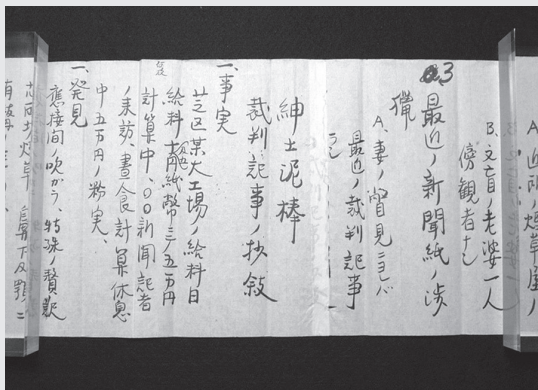 A 近所ノ煙草屋ノ
B. 文盲ノ老婆一人
傍観者ナシ
3
最近ノ新聞紙ノ渉
猟
A. 妻ノ瞥見ニヨレバ
最近ノ裁判記事
ラシ
紳士泥棒
裁判記事ノ抄録
一、事実
芝区某大工場ノ給料日
給料 紙幣ニテ五万円
計算中、〇〇新聞記者
ノ来訪、晝食計算休息
中五万円ノ紛失、
一、発見
應接間ノ吹がら、特殊ノ贅沢
煙草 鼻下及顎ニ